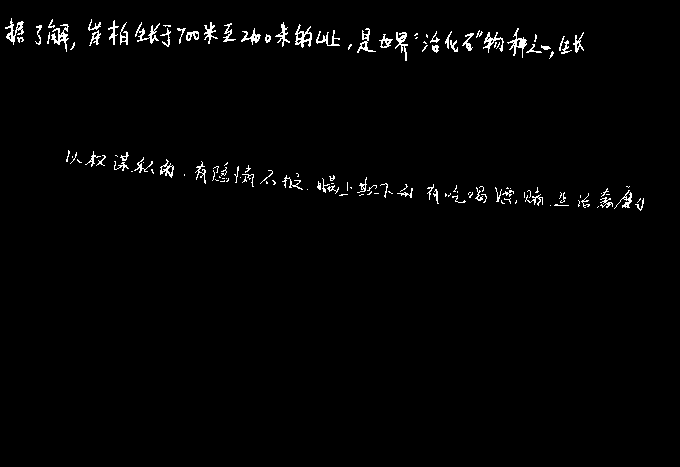 据了解,崖柏生长于700米至2100米的山上,是世界“活化石”物种之一,生长
以权谋私的.有隐情不报.瞒上欺下的有吃喝嫖,赌.生活腐